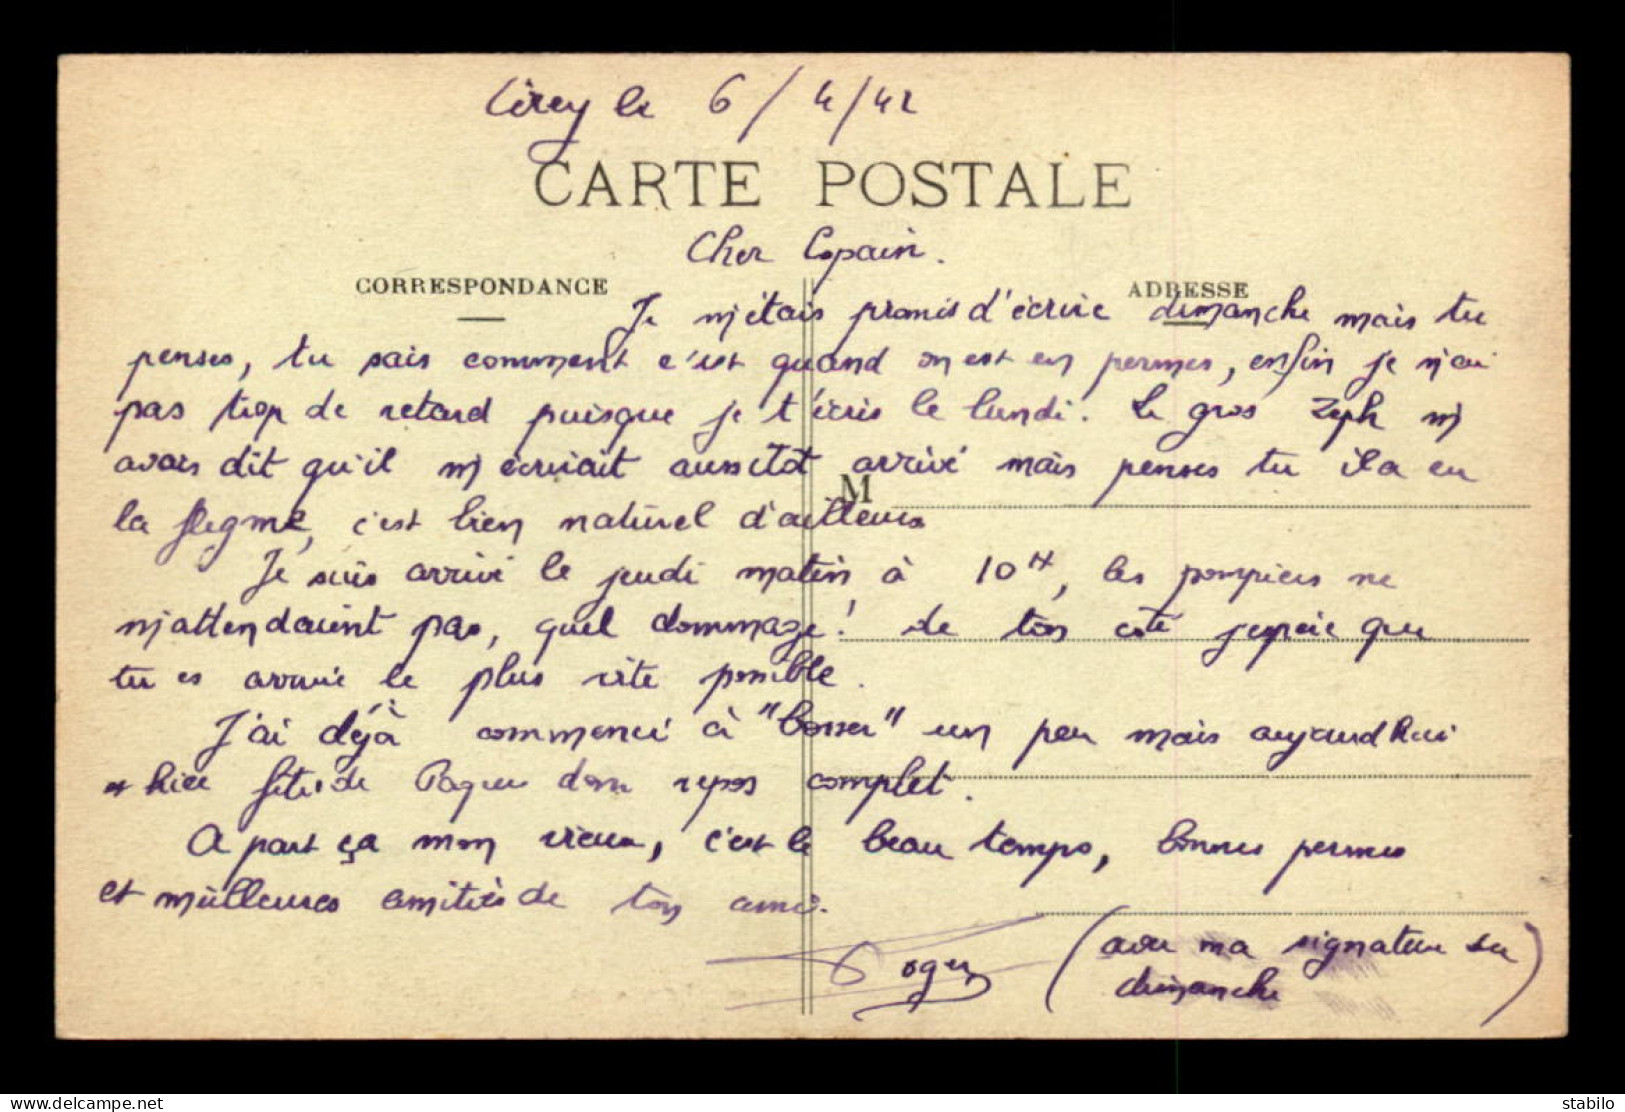 Cirey le 6/4/42
CARTE POSTALE
Cher Copain.
CORRESPONDANCE
ADRESSE
Je m'étais promis d'écrire dimanche mais tu
penses, tu sais comment c'est quand on est en permes, enfin je n'ai
pas trop de retard puisque je t'écris le lundi. Le gros Zeph m'
avais dit qu'il m'écrivait aussitot arrivé mais penses tu il a eu
la flegme, c'est bien naturel d'ailleurs
M
Je suis arrivé le jeudi matin à 10H, les pompiers ne
m'attendaient pas, quel dommage! de ton côté j'espère que
tu es arrivé le plus vite possible.
J'ai déjà commencé à "bosser" un peu mais aujourd'hui
et hier fête de Paques donc repos complet.
A part ça mon vieux, c'est le beau temps, bonnes permes
et meilleures amitiés de ton ami.
Roger
(avec ma signature du
dimanche)
stabilo